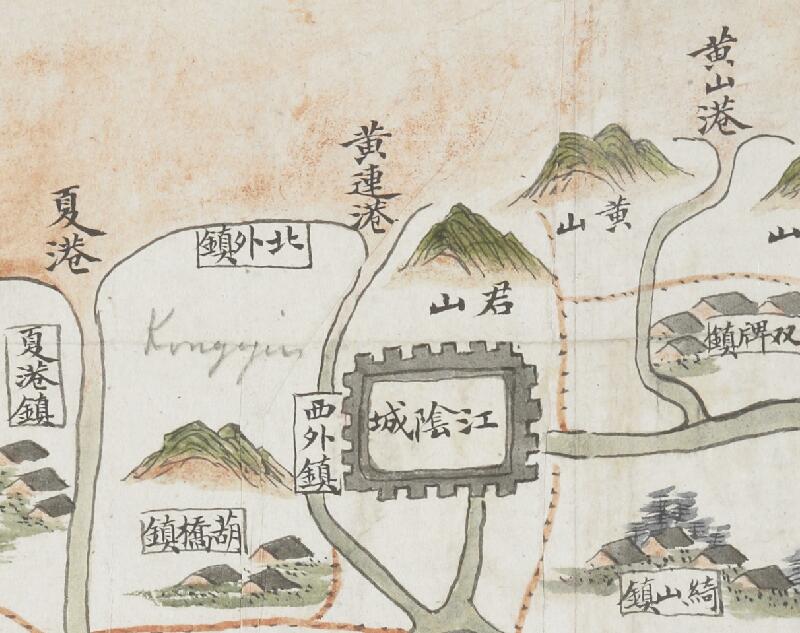 黄山港
黄連港
夏港
黄山
北外鎮
山
君山
Kongyin
双牌鎮
夏港鎮
江陰城
西外鎮
葫橋鎮
綺山鎮